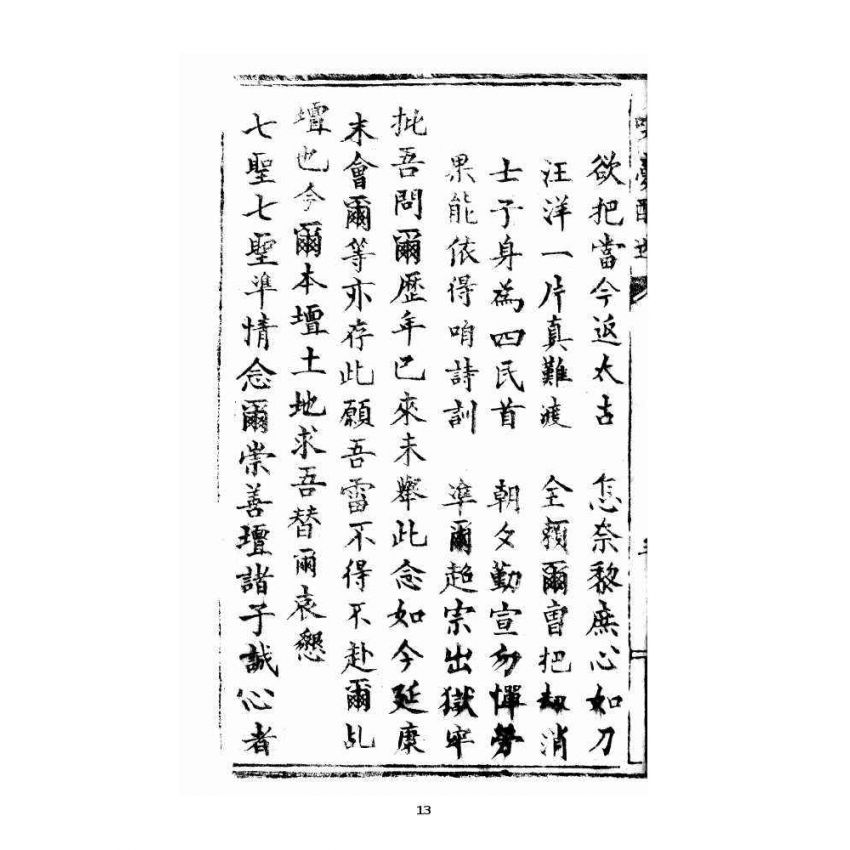 夢醒世
欲把當今返太古 怎奈黎庶心如刀
汪洋一片真難渡 全賴爾曹把劫消
士子身為四民首 朝夕勤宣勿憚勞
果能依得咱詩訓 準爾超宗出獄牢
批吾問爾歷年已來未舉此念如今延康
末會爾等亦存此願吾雷不得不赴爾乩
壇也今爾本壇土地求吾替爾哀懇
七聖七聖準情念爾崇善壇諸子誠心者
13